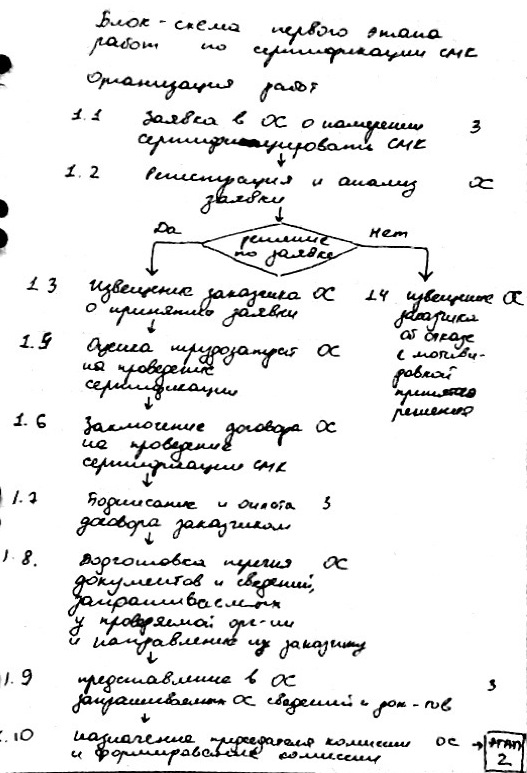 Блок-схема первого этапа
работ по сертификации СМК
Организация работ
1.1 Заявка в ОС о намерении 3
сертифицировать СМК
1.2 Регистрация и анализ ОС
заявки
Да решение Нет
по заявке
1.3 Извещение заказчика ОС
о принятии заявки
1.4 извещение ОС
заказчика
об отказе
с мотиви-
ровкой
принятого
решения
1.5 Оценка трудозатрат ОС
на проведение
сертификации
1.6 Заключение договора ОС
на проведение
сертификации СМК
1.7 Подписание и оплата 3
договора заказчиком
1.8. Подготовка перечня ОС
документов и сведений,
запрашиваемых
у проверяемой орг-ии
и направление их заказчику
1.9 представление в ОС 3
запрашиваемых ОС сведений и док-тов
1.10 назначение председателя комиссии ОС → ЭТАП
и формирование комиссии 2